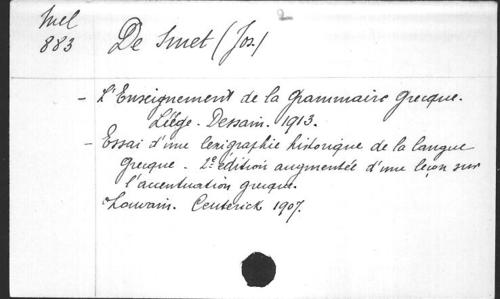 Mel
883
De Smet (Jos.)
2
- L'Enseignement de la Grammaire Grecque.
Liége. Dessain. 1913.
- Essai d'une lexigraphie historique de la langue
Grecque. 2e édition augmentée d'une leçon sur
l'accentuation grecque.
Louvain. Ceuterick 1907.